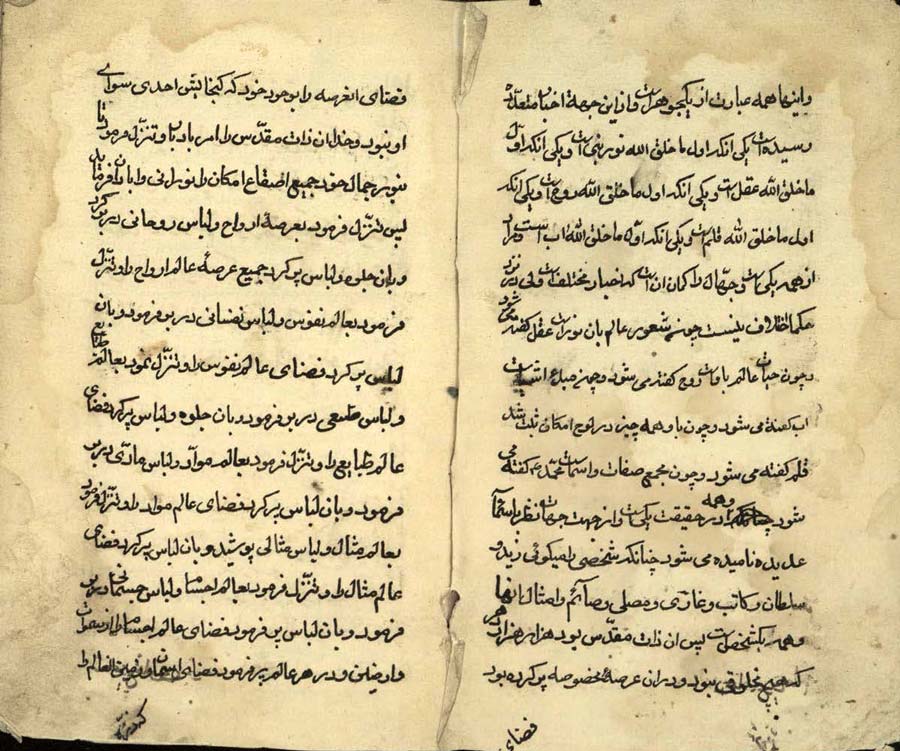 واینها همه عبارت از یکجوهر است و از این جهة اخبار متعدّده
رسیده است یکی انکه اول ما خلق الله نور نبی است و یکی انکه اوّل
ما خلق الله عقل است و یکی انکه اول ما خلق الله روح است و یکی انکه
اول ما خلق الله قلم است و یکی انکه اوّل ما خلق الله اب است و مراد
از همه یکی است و جهّال را کمان ان است که اخبار مختلف است ولی در نزد
حکما اختلاف نیست چونکه شعور عالم بان نور است عقل کفته میشود
و چون حیات عالم باوست روح کفته می شود و چون مبدء اشیاست
اب کفته می شود و چون باو همه چیز در لوح امکان ثبت شد
قلم کفته می شود و چون مجمع صفات و اسماست محمّد ص کفته می
شود و همه در حقیقت یکیست و از جهت جهات نظر باسماء
عدیده نامیده می شود چنانکه شخصی را میکوئی زید و
سلطان و کاتب و غازی و مصلی و صائم و امثال انها
و همه یکشخص است پس ان ذات مقدّس بود هزار هزار دهر
که هیچ مخلوقی نبود و در ان عرصهٔ مخصوصه پر کرده بود
فضای
فضای انعرصه را بوجود خود که کنجایش احدی سوای
او نبود و خدا ان ذات مقدّس را امر باد بار و تنزّل فرمود تا
بنور جمال خود جمیع اصقاع امکان را نورانی و ابادان فرماید
پس تنزّل فرمود بعرصهٔ ارواح و لباس روحانی در بر کرد
و بان جلوه و لباس پر کرد جمیع عرصهٔ عالم ارواح را و تنزّل
فرمود بعالم نفوس و لباس نفسانی در بر فرمود و بان
لباس پر کرد فضای عالم نفوس را و تنزّل نمود بعالم طبایع
و لباس طبعی در بر فرمود و بان جلوه و لباس پر کرد فضای
عالم طبایع را و تنزّل فرمود بعالم موادّ و لباس مادّی در بر
فرمود و بان لباس پر کرد فضای عالم مواد را و تنزّل فرمود
بعالم مثال و لباس مثالی پوشید و بان لباس پر کرد فضای
عالم مثال را و تنزّل فرمود بعالم اجسام و لباس جسمانی در بر
فرمود و بان لباس پر فرمود فضای عالم اجسام را از سموات
و ارضین و در هر عالم پر فرمود فضای